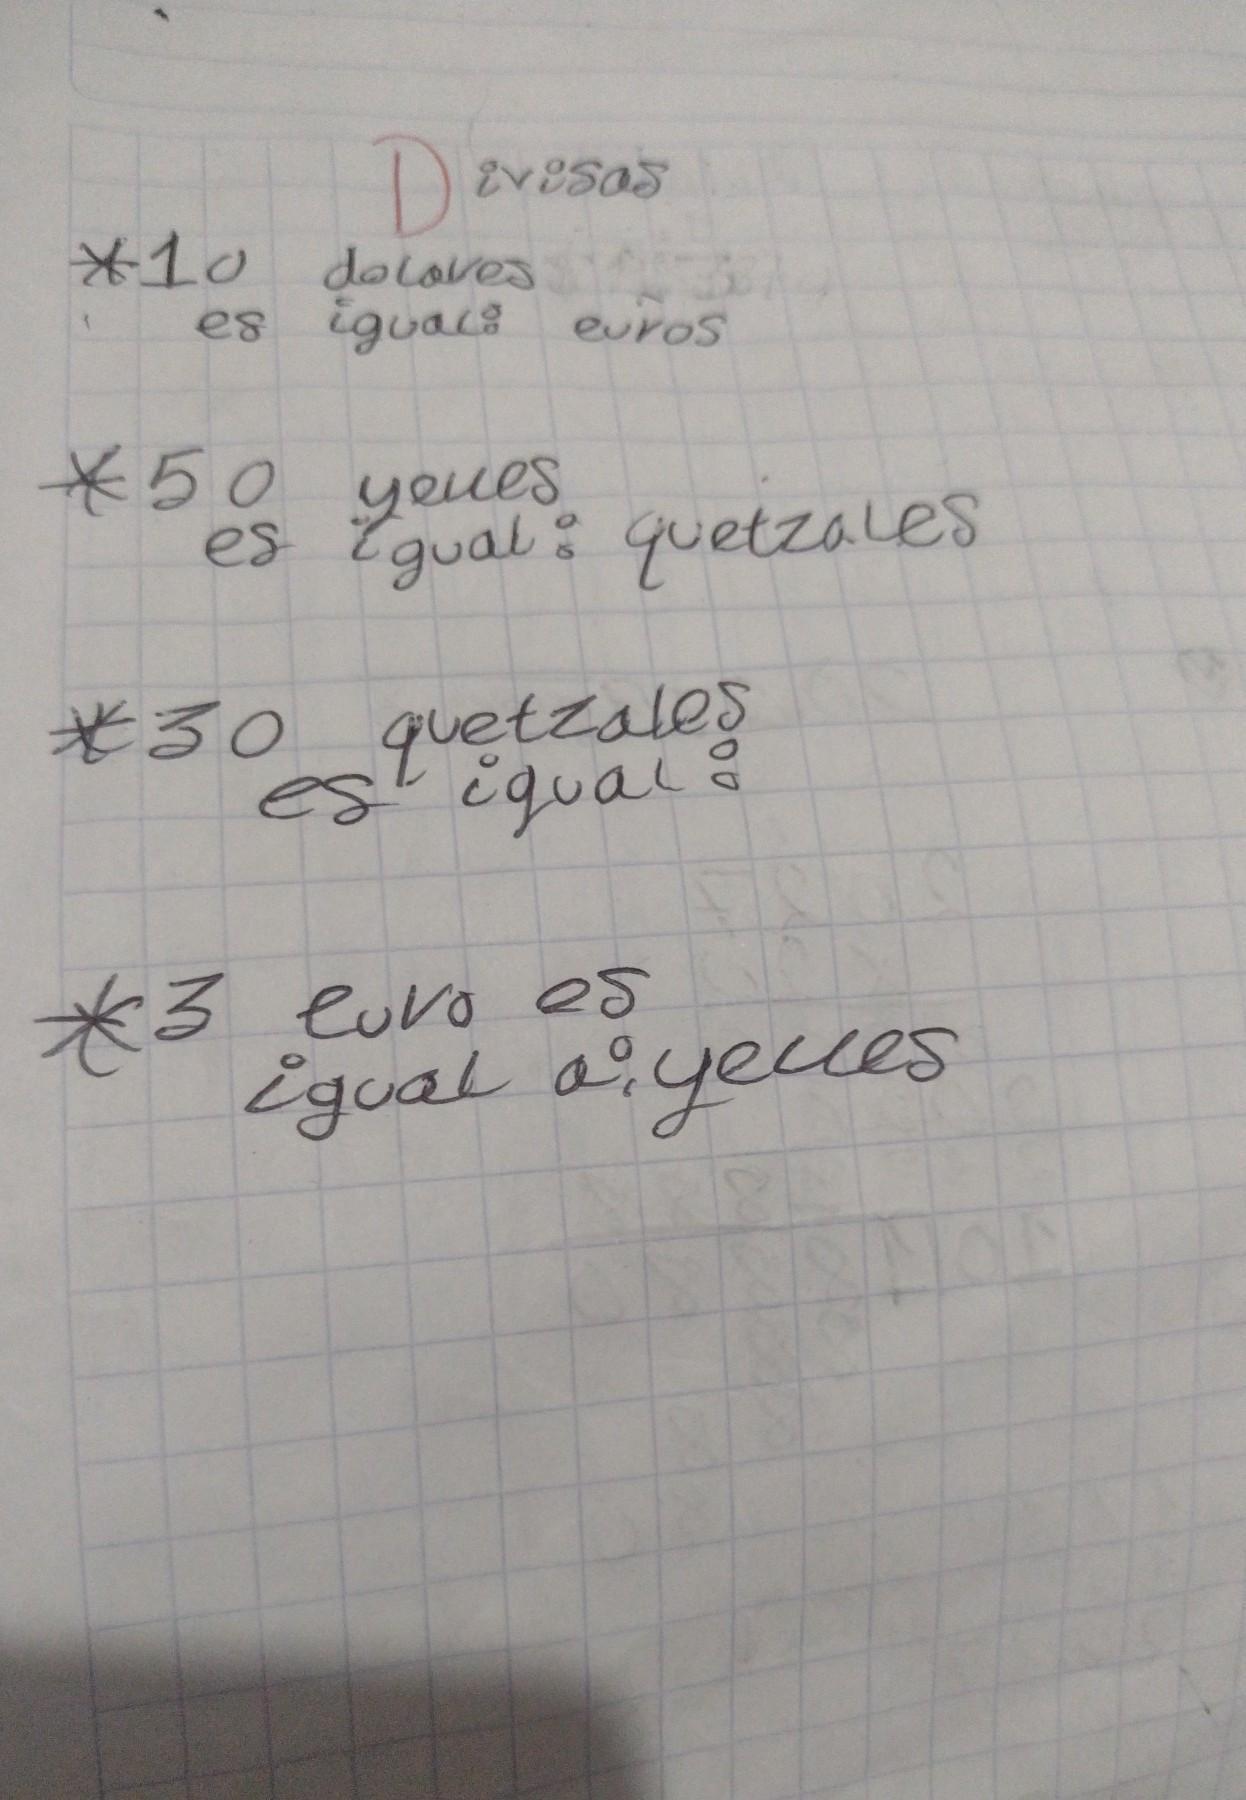 Divisas
*10 dolares
es igual: euros
*50 yenes
es igual: quetzales
*30 quetzales
es igual:
*3 euro es
igual a: yenes